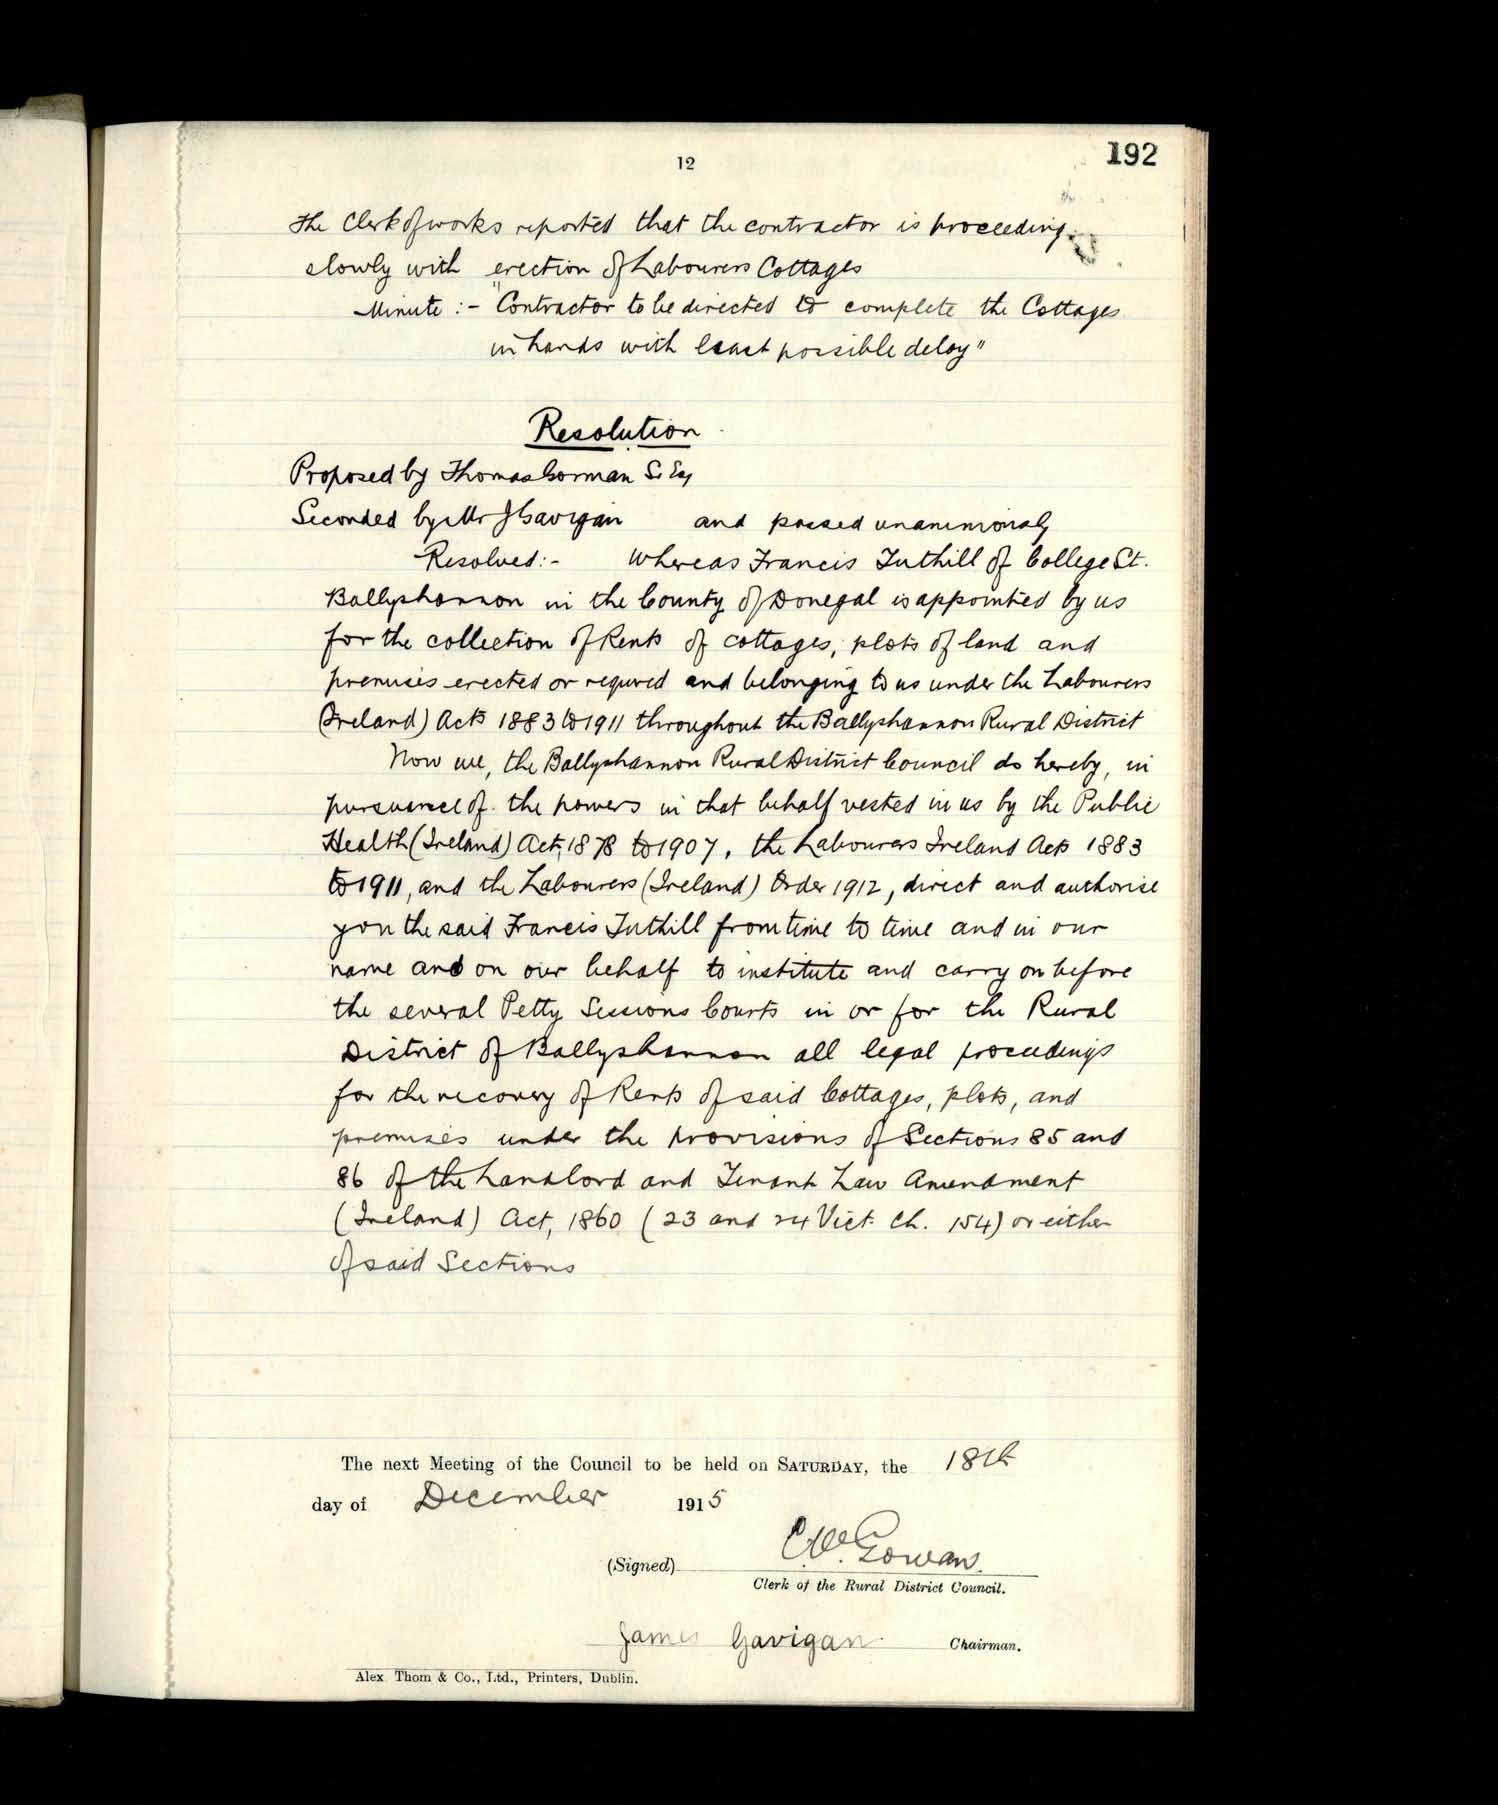 12
192
The Clerk of works reported that the contractor is proceeding
slowly with erection of Labourers Cottages
Minute :- "Contractor to be directed to complete the Cottages
in hands with least possible delay"
Resolution
Proposed by Thomas Gorman Sr Esq
Seconded by Mr J Gavigan and passed unanimously
Resolved:- Whereas Francis Tuthill of College St.
Ballyshannon in the County of Donegal is appointed by us
for the collection of Rents of cottages, plots of land and
premises erected or required and belonging to us under the Labourers
(Ireland) Acts 1883 to 1911 throughout the Ballyshannon Rural District
Now we, the Ballyshannon Rural District Council do hereby, in
pursuance of the powers in that behalf vested in us by the Public
Health (Ireland) Act, 1878 to 1907, the Labourers Ireland Acts 1883
to 1911, and the Labourers (Ireland) Order 1912, direct and authorise
you the said Francis Tuthill from time to time and in our
name and on our behalf to institute and carry on before
the several Petty Sessions Courts in or for the Rural
District of Ballyshannon all legal proceedings
for the recovery of Rents of said Cottages, plots, and
premises under the provisions of Sections 85 and
86 of the Landlord and Tenant Law Amendment
(Ireland) Act, 1860 (23 and 24 Vict. Ch. 154) or either
of said Sections
The next Meeting of the Council to be held on SATURDAY, the 18th
day of December 1915
(Signed) Gowans
Clerk of the Rural District Council.
James Gavigan Chairman.
Alex Thom & Co., Ltd., Printers, Dublin.